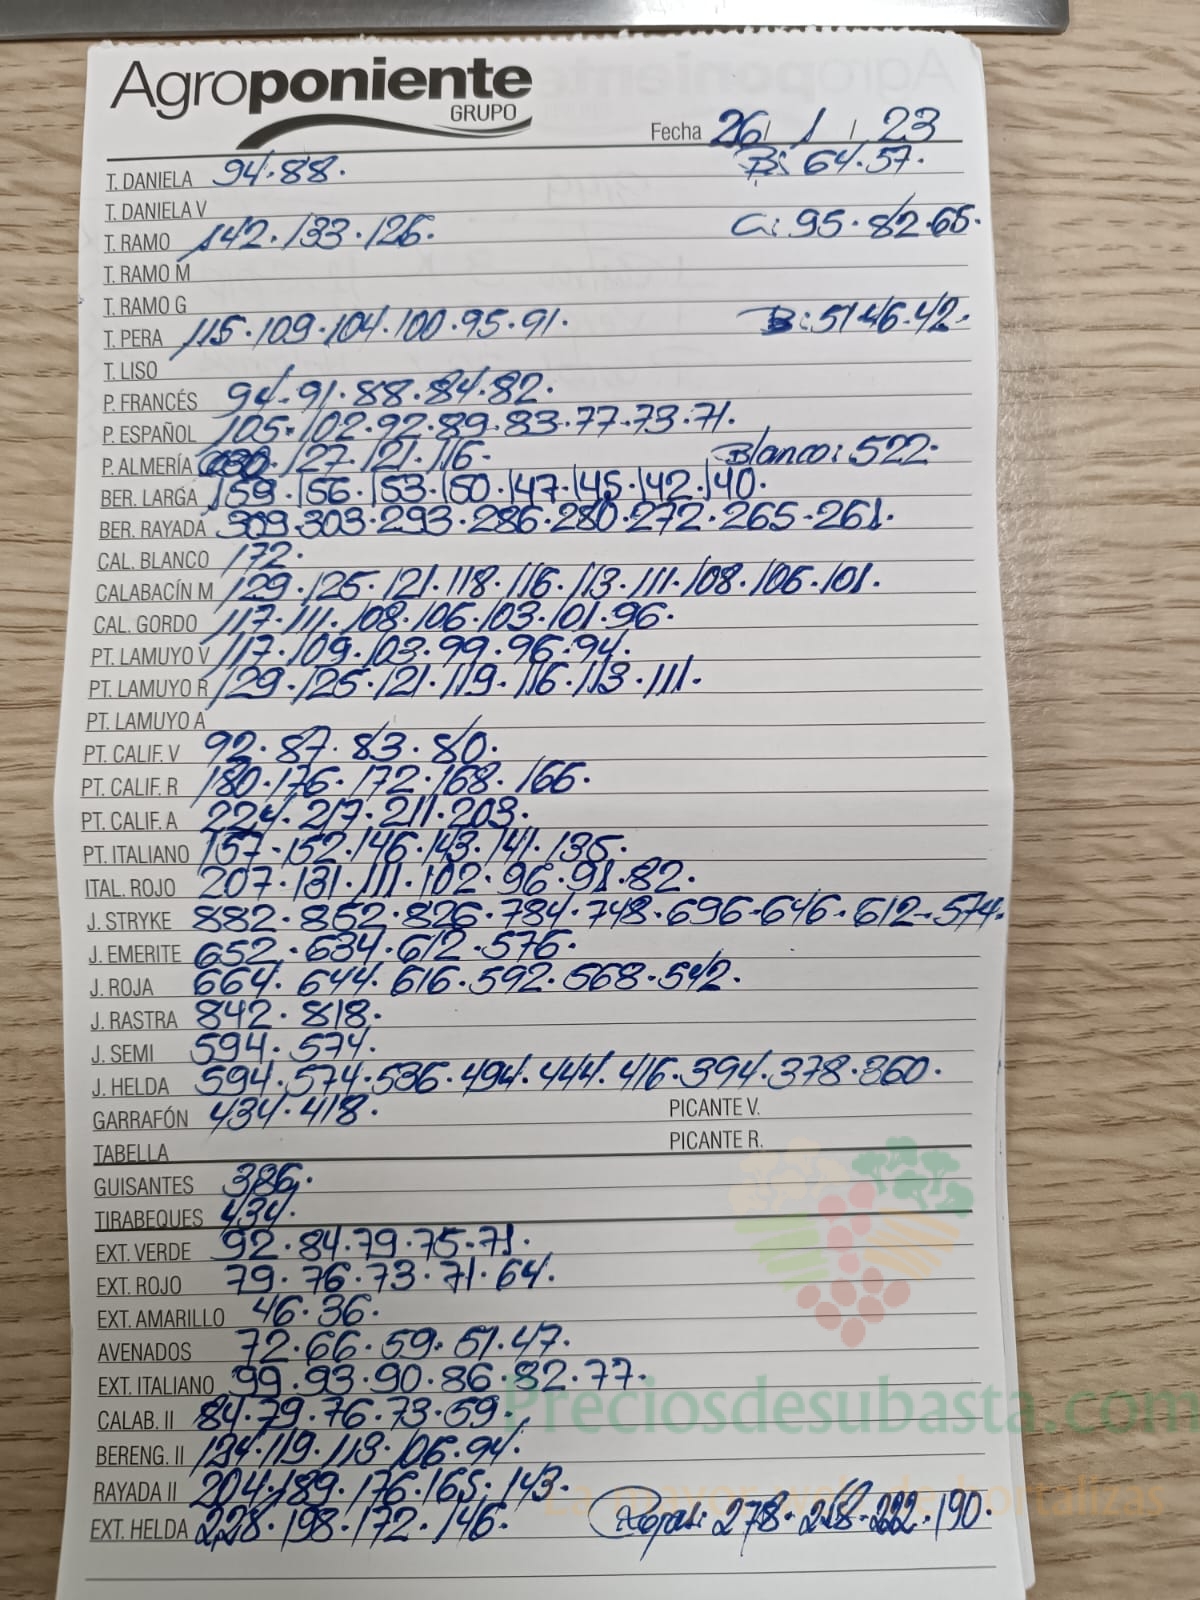 Agroponiente
GRUPO
Fecha 26 / 1 / 23
T. DANIELA 94.88. B: 64.57.
T. DANELA V
T. RAMO 142.133.126. C: 95.82.65.
T. RAMO M
T. RAMO G
T. PERA 115.109.104.100.95.91. B: 51.46.42.
T. LISO
P. FRANCÉS 94.91.88.84.82.
P. ESPAÑOL 105.102.92.89.83.77.73.71.
P. ALMERÍA 127.121.116. Blanco: 522.
BER. LARGA 159.156.153.150.147.145.142.140.
BER. RAYADA 309.303.293.286.280.272.265.261.
CAL. BLANCO 172.
CALABACÍN M 129.125.121.118.116.113.111.108.106.101.
CAL. GORDO 117.111.108.106.103.101.96.
PT. LAMUYO V 117.109.103.99.96.94.
PT. LAMUYO R 129.125.121.119.116.113.111.
PT. LAMUYO A
PT. CALIF. V 92.87.83.80.
PT. CALIF. R 180.176.172.168.166.
PT. CALIF. A 224.217.211.203.
PT. ITALIANO 157.152.146.143.141.135.
ITAL. ROJO 207.131.111.102.96.91.82.
J. STRYKE 882.862.826.784.748.696.646.612.574.
J. EMERITE 652.634.612.576.
J. ROJA 664.644.616.592.568.542.
J. RASTRA 842.818.
J. SEMI 594.574.
J. HELDA 594.574.536.494.444.416.394.378.360.
GARRAFÓN 434.418. PICANTE V.
TABELLA PICANTE R.
GUISANTES 386.
TIRABEQUES 434.
EXT. VERDE 92.84.79.75.71.
EXT. ROJO 79.76.73.71.64.
EXT. AMARILLO 46.36.
AVENADOS 72.66.59.51.47.
EXT. ITALIANO 99.93.90.86.82.77.
CALAB. II 84.79.76.73.59.
BERENG. II 134.119.113.106.94.
RAYADA II 204.189.176.165.143.
EXT. HELDA 228.198.172.146. Rojas: 278.258.222.190.
Preciosdesubasta.com